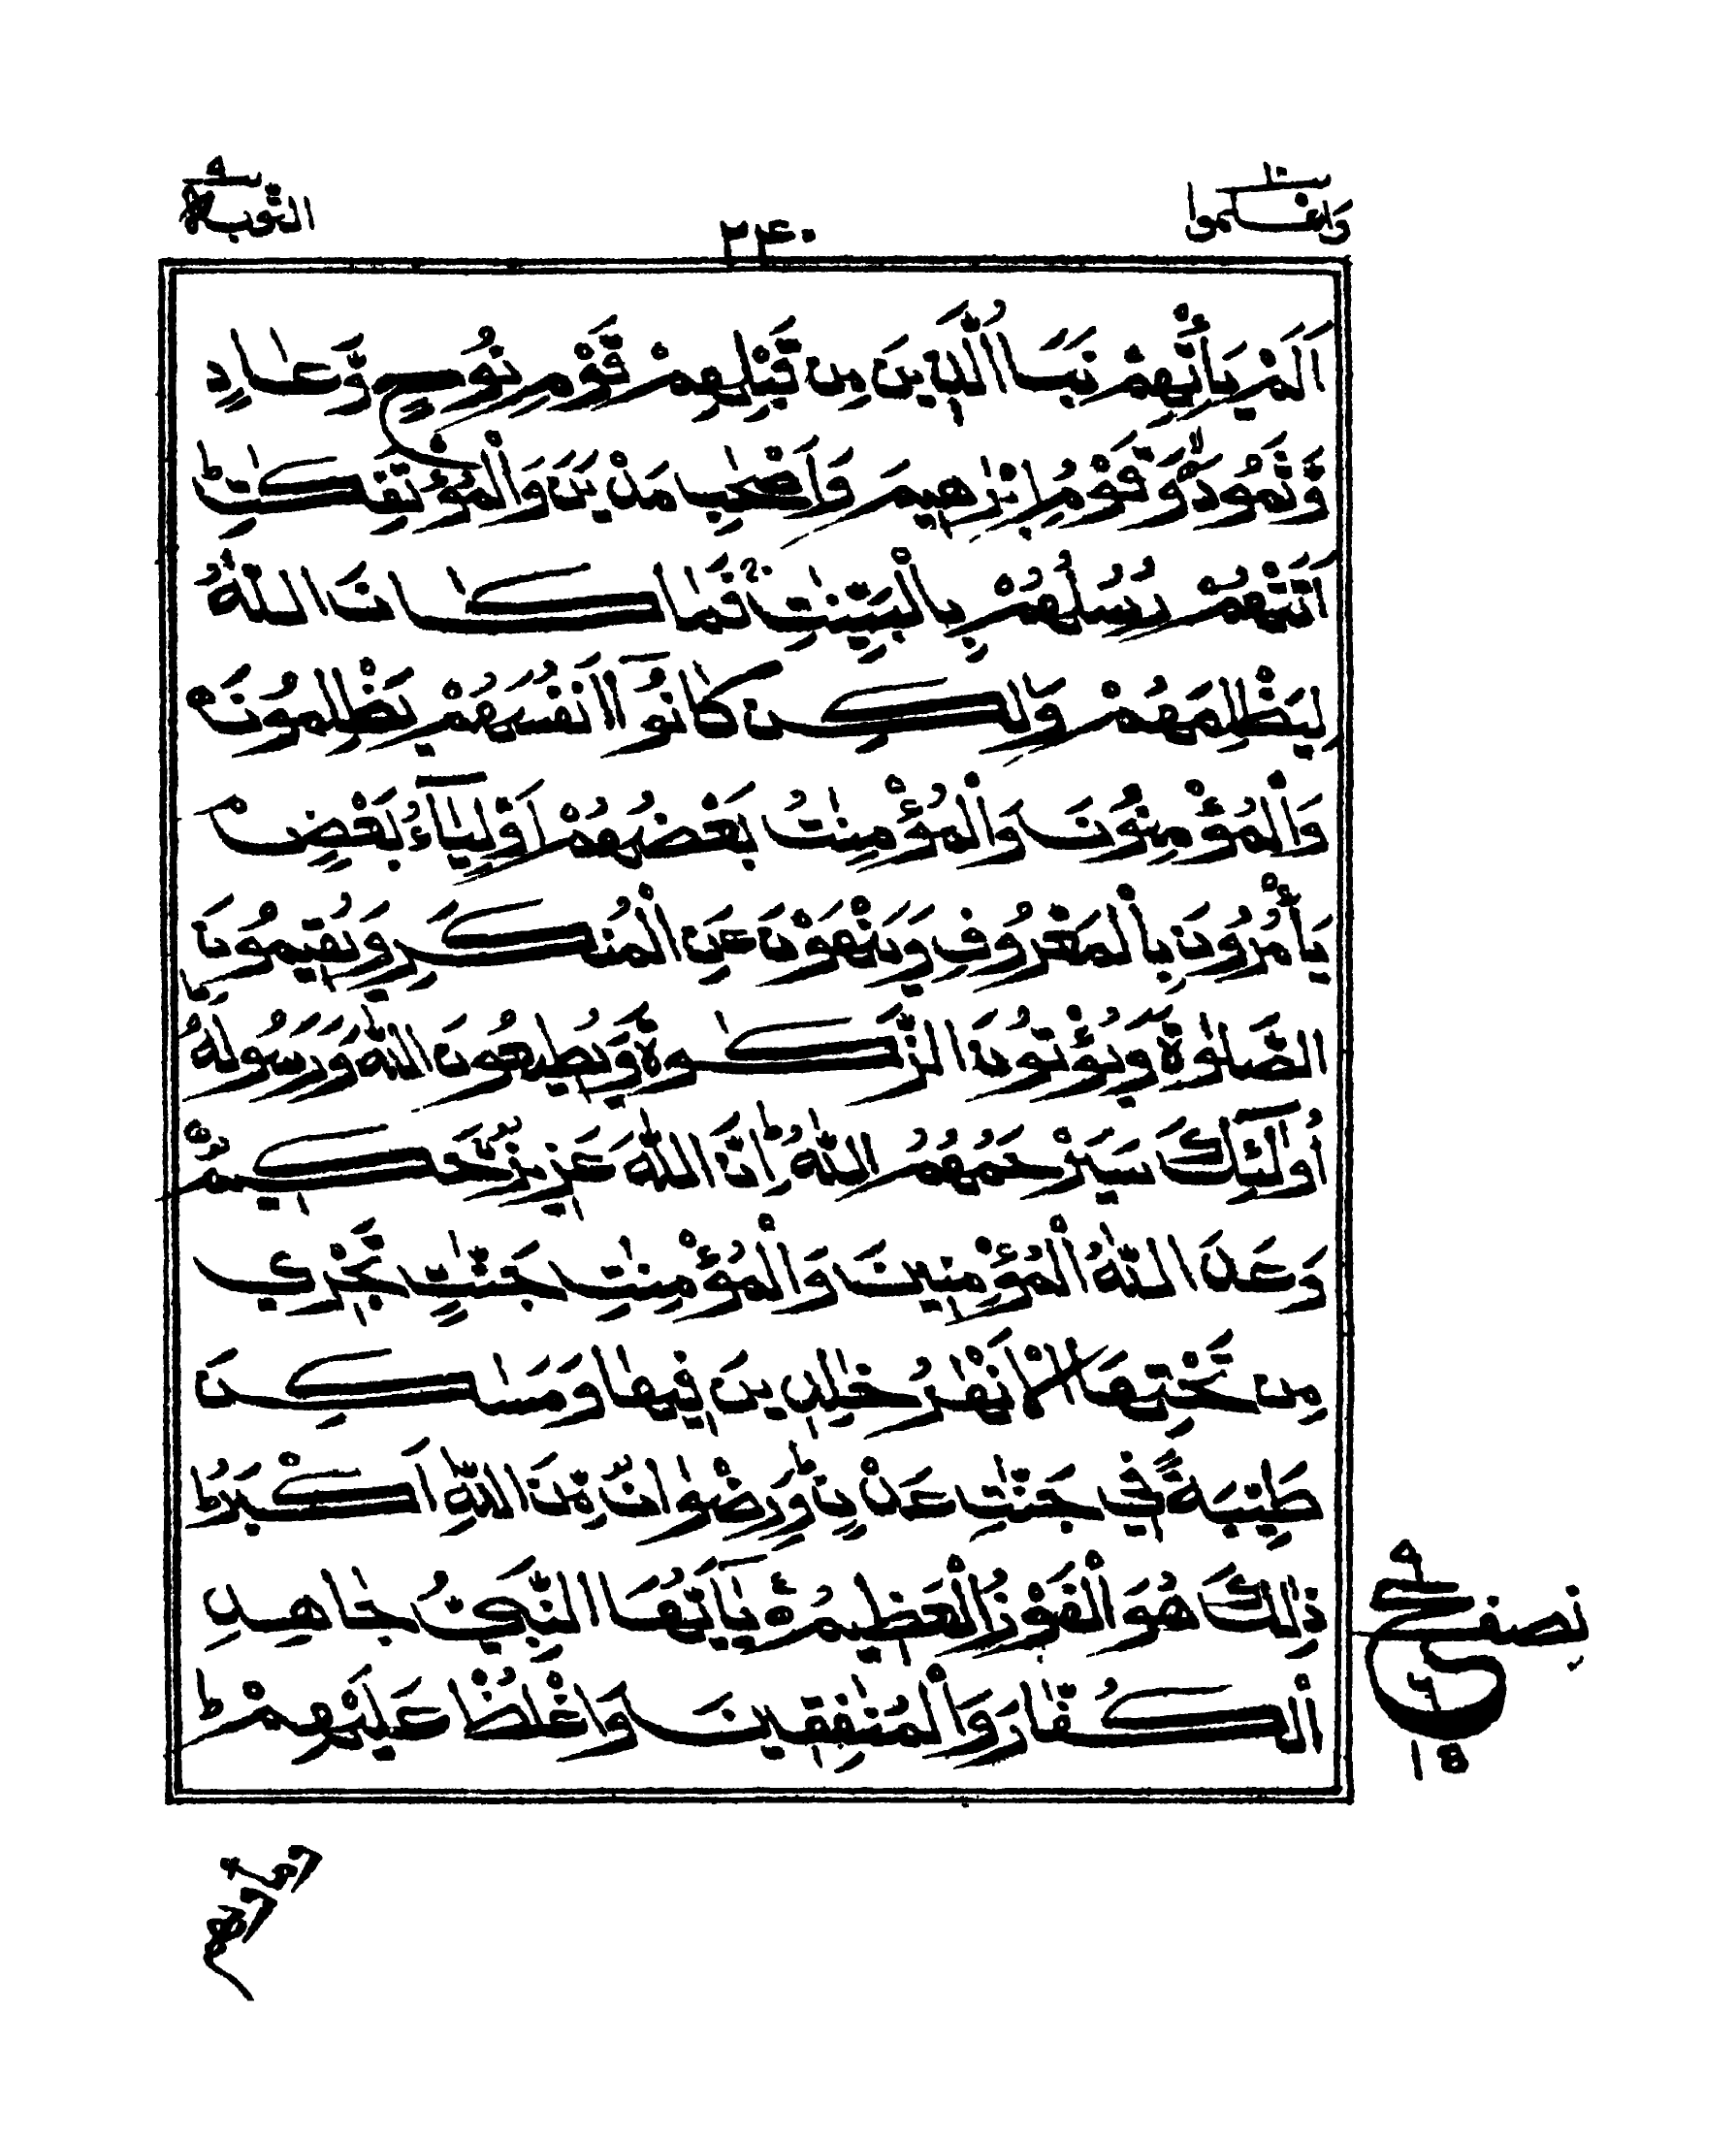 واعلموا ١٠
٢٤٠
التوبة ٩
اَلَمْ يَاْتِهِمْ نَبَاُ الَّذِيْنَ مِنْ قَبْلِهِمْ قَوْمِ نُوْحٍ وَّعَادٍ
وَّثَمُوْدَ وَقَوْمِ اِبْرٰهِيْمَ وَاَصْحٰبِ مَدْيَنَ وَالْمُؤْتَفِكٰتِ ؕ
اَتَتْهُمْ رُسُلُهُمْ بِالْبَيِّنٰتِ فَمَا كَانَ اللّٰهُ
لِيَظْلِمَهُمْ وَلٰكِنْ كَانُوْۤا اَنْفُسَهُمْ يَظْلِمُوْنَ
وَالْمُؤْمِنُوْنَ وَالْمُؤْمِنٰتُ بَعْضُهُمْ اَوْلِيَآءُ بَعْضٍ
يَاْمُرُوْنَ بِالْمَعْرُوْفِ وَيَنْهَوْنَ عَنِ الْمُنْكَرِ وَيُقِيْمُوْنَ
الصَّلٰوةَ وَيُؤْتُوْنَ الزَّكٰوةَ وَيُطِيْعُوْنَ اللّٰهَ وَرَسُوْلَهٗ
اُولٰٓئِكَ سَيَرْحَمُهُمُ اللّٰهُ ؕ اِنَّ اللّٰهَ عَزِيْزٌ حَكِيْمٌ
وَعَدَ اللّٰهُ الْمُؤْمِنِيْنَ وَالْمُؤْمِنٰتِ جَنّٰتٍ تَجْرِيْ
مِنْ تَحْتِهَا الْاَنْهٰرُ خٰلِدِيْنَ فِيْهَا وَمَسٰكِنَ
طَيِّبَةً فِيْ جَنّٰتِ عَدْنٍ ؕ وَرِضْوَانٌ مِّنَ اللّٰهِ اَكْبَرُ ؕ
ذٰلِكَ هُوَ الْفَوْزُ الْعَظِيْمُ يٰۤاَيُّهَا النَّبِيُّ جَاهِدِ
الْكُفَّارَ وَالْمُنٰفِقِيْنَ وَاغْلُظْ عَلَيْهِمْ ؕ
نصف
ع
٩
١٥